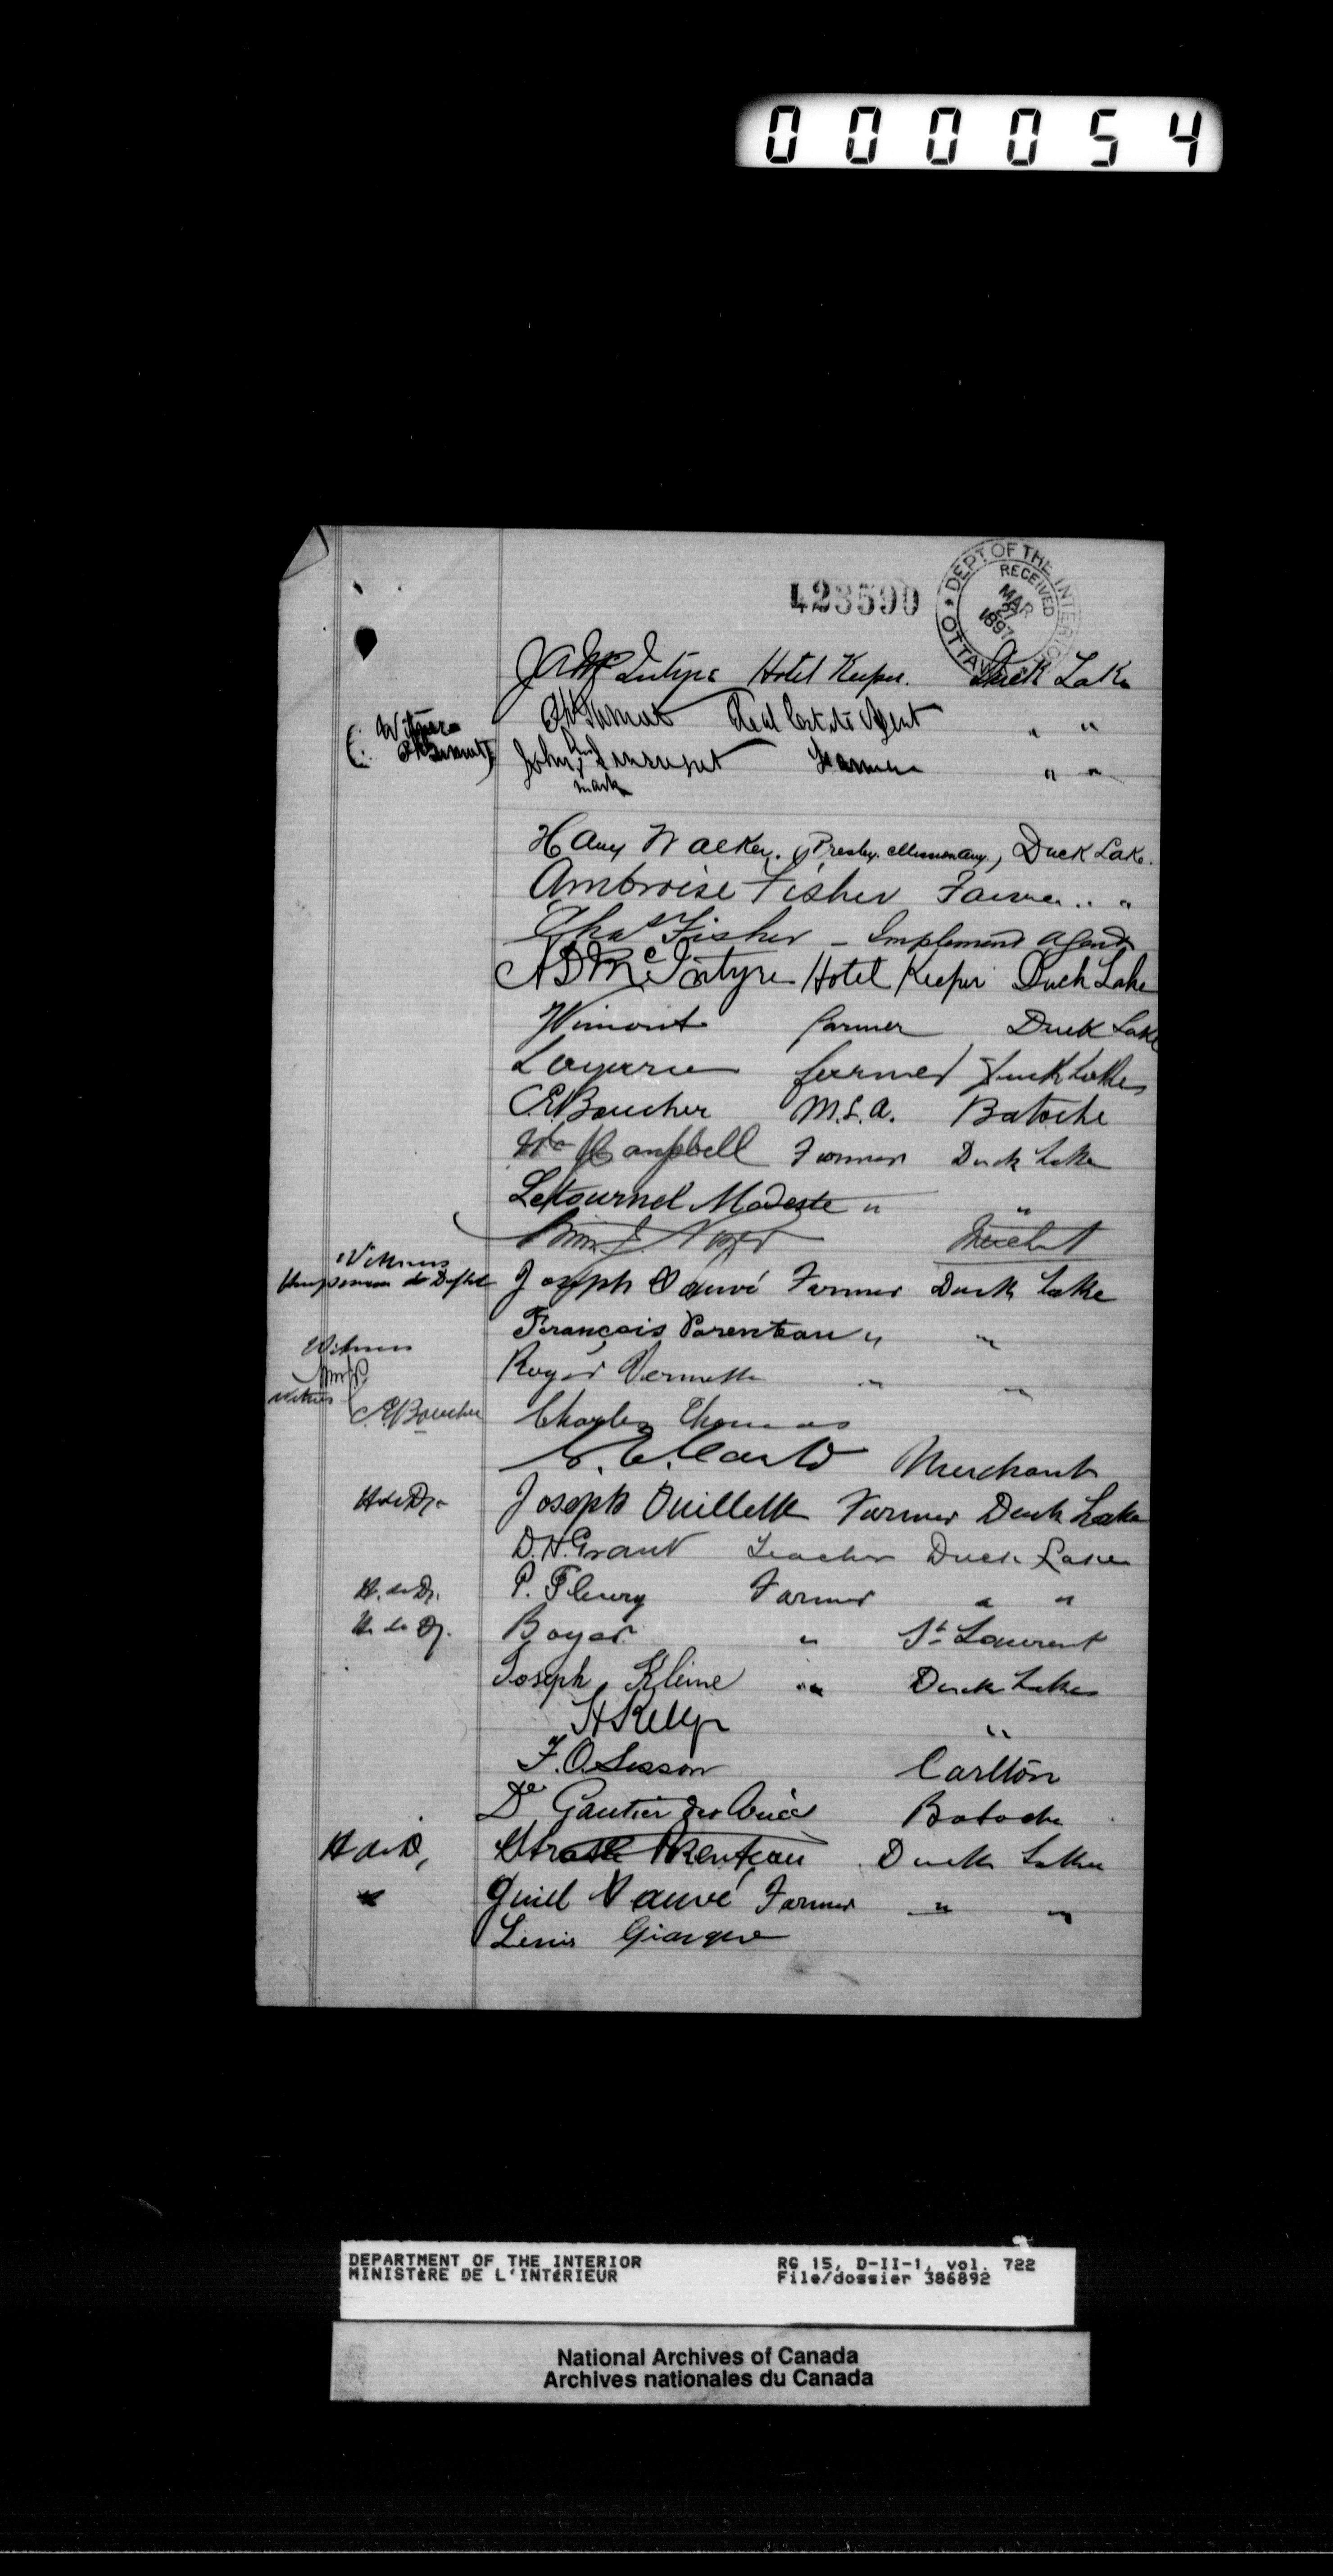 000054
423590
DEPT OF THE INTERIOR
RECEIVED
MAR 27 1897
OTTAWA
J A McIntyre Hotel Keeper. Duck Lake
Real Estate Agent " "
Witness
John his mark Farmer " "
Harry Walker. (Presby. Missionary.) Duck Lake.
Ambroise Fisher Farmer " "
Chas Fisher - Implement Agent
A D McIntyre Hotel Keeper Duck Lake
Wimont farmer Duck Lake
farmer Duck Lake
C.E. Boucher M.L.A. Batoche
Wm Campbell Farmer Duck Lake
Letournel Modeste " "
Witness
Joseph Sauvé Farmer Duck Lake
François Parenteau " "
Witness
Roger Vermette " "
Witness C.E. Boucher Charles Thomas
Merchant
H de D. Joseph Ouillette Farmer Duck Lake
D.H. Grant Teacher Duck Lake
H. de D. P. Fleury Farmer " "
H. de D. Boyer " St Laurent
Joseph Kleine " Duck Lake
H Kelly "
F. O. Sisson Carlton
Dr Gautier Batoche
H de D, Parenteau Duck Lake
" Sauvé Farmer " "
DEPARTMENT OF THE INTERIOR RG 15, D-II-1, vol. 722
MINISTÈRE DE L'INTÉRIEUR File/dossier 386892
National Archives of Canada
Archives nationales du Canada